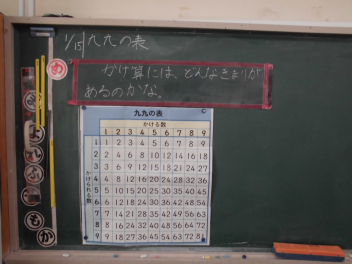 1/15 九九の表
め
かけ算には、どんなきまりが
あるのかな。
九九の表
かける数
1 2 3 4 5 6 7 8 9
かけられる数
1 1 2 3 4 5 6 7 8 9
2 2 4 6 8 10 12 14 16 18
3 3 6 9 12 15 18 21 24 27
4 4 8 12 16 20 24 28 32 36
5 5 10 15 20 25 30 35 40 45
6 6 12 18 24 30 36 42 48 54
7 7 14 21 28 35 42 49 56 63
8 8 16 24 32 40 48 56 64 72
9 9 18 27 36 45 54 63 72 81
も
か